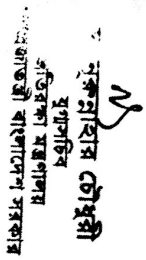 নুরুন্নাহার চৌধুরী
যুগ্মসচিব
প্রতিরক্ষা মন্ত্রণালয়
গণপ্রজাতন্ত্রী বাংলাদেশ সরকার